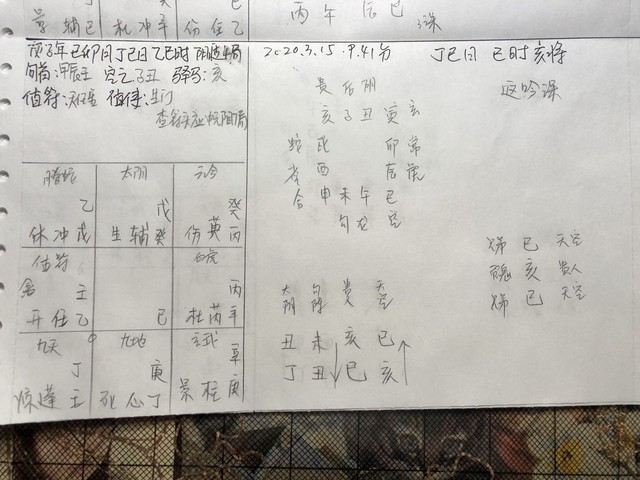 景 辅 己 杜 冲 辛 伤 任 乙
丙 午 辰 巳
课
庚子年己卯月丁巳日乙巳时 阴遁
旬首:甲辰壬 空亡:子丑 驿马:亥
值符:天任星 值使:生门
2020.3.15.9.41分
丁巳日 巳时亥将
返吟课
贵 后 阴
亥 子 丑 寅 玄
蛇 戌 卯 常
雀 酉 辰 虎
合 申 未 午 巳
勾 龙 空
螣蛇 太阴 六合
乙 戊 癸
休 冲 戊 生 辅 癸 伤 英 丙
值符 白虎
禽 壬 丙
开 任 乙 己 杜 芮 辛
九天 九地 玄武
丁 庚 辛
惊 蓬 壬 死 心 丁 景 柱 庚
巳 天空
亥 贵人
巳 天空
太阴 勾陈 贵人 天空
丑 未 亥 巳
丁 丑 巳 亥